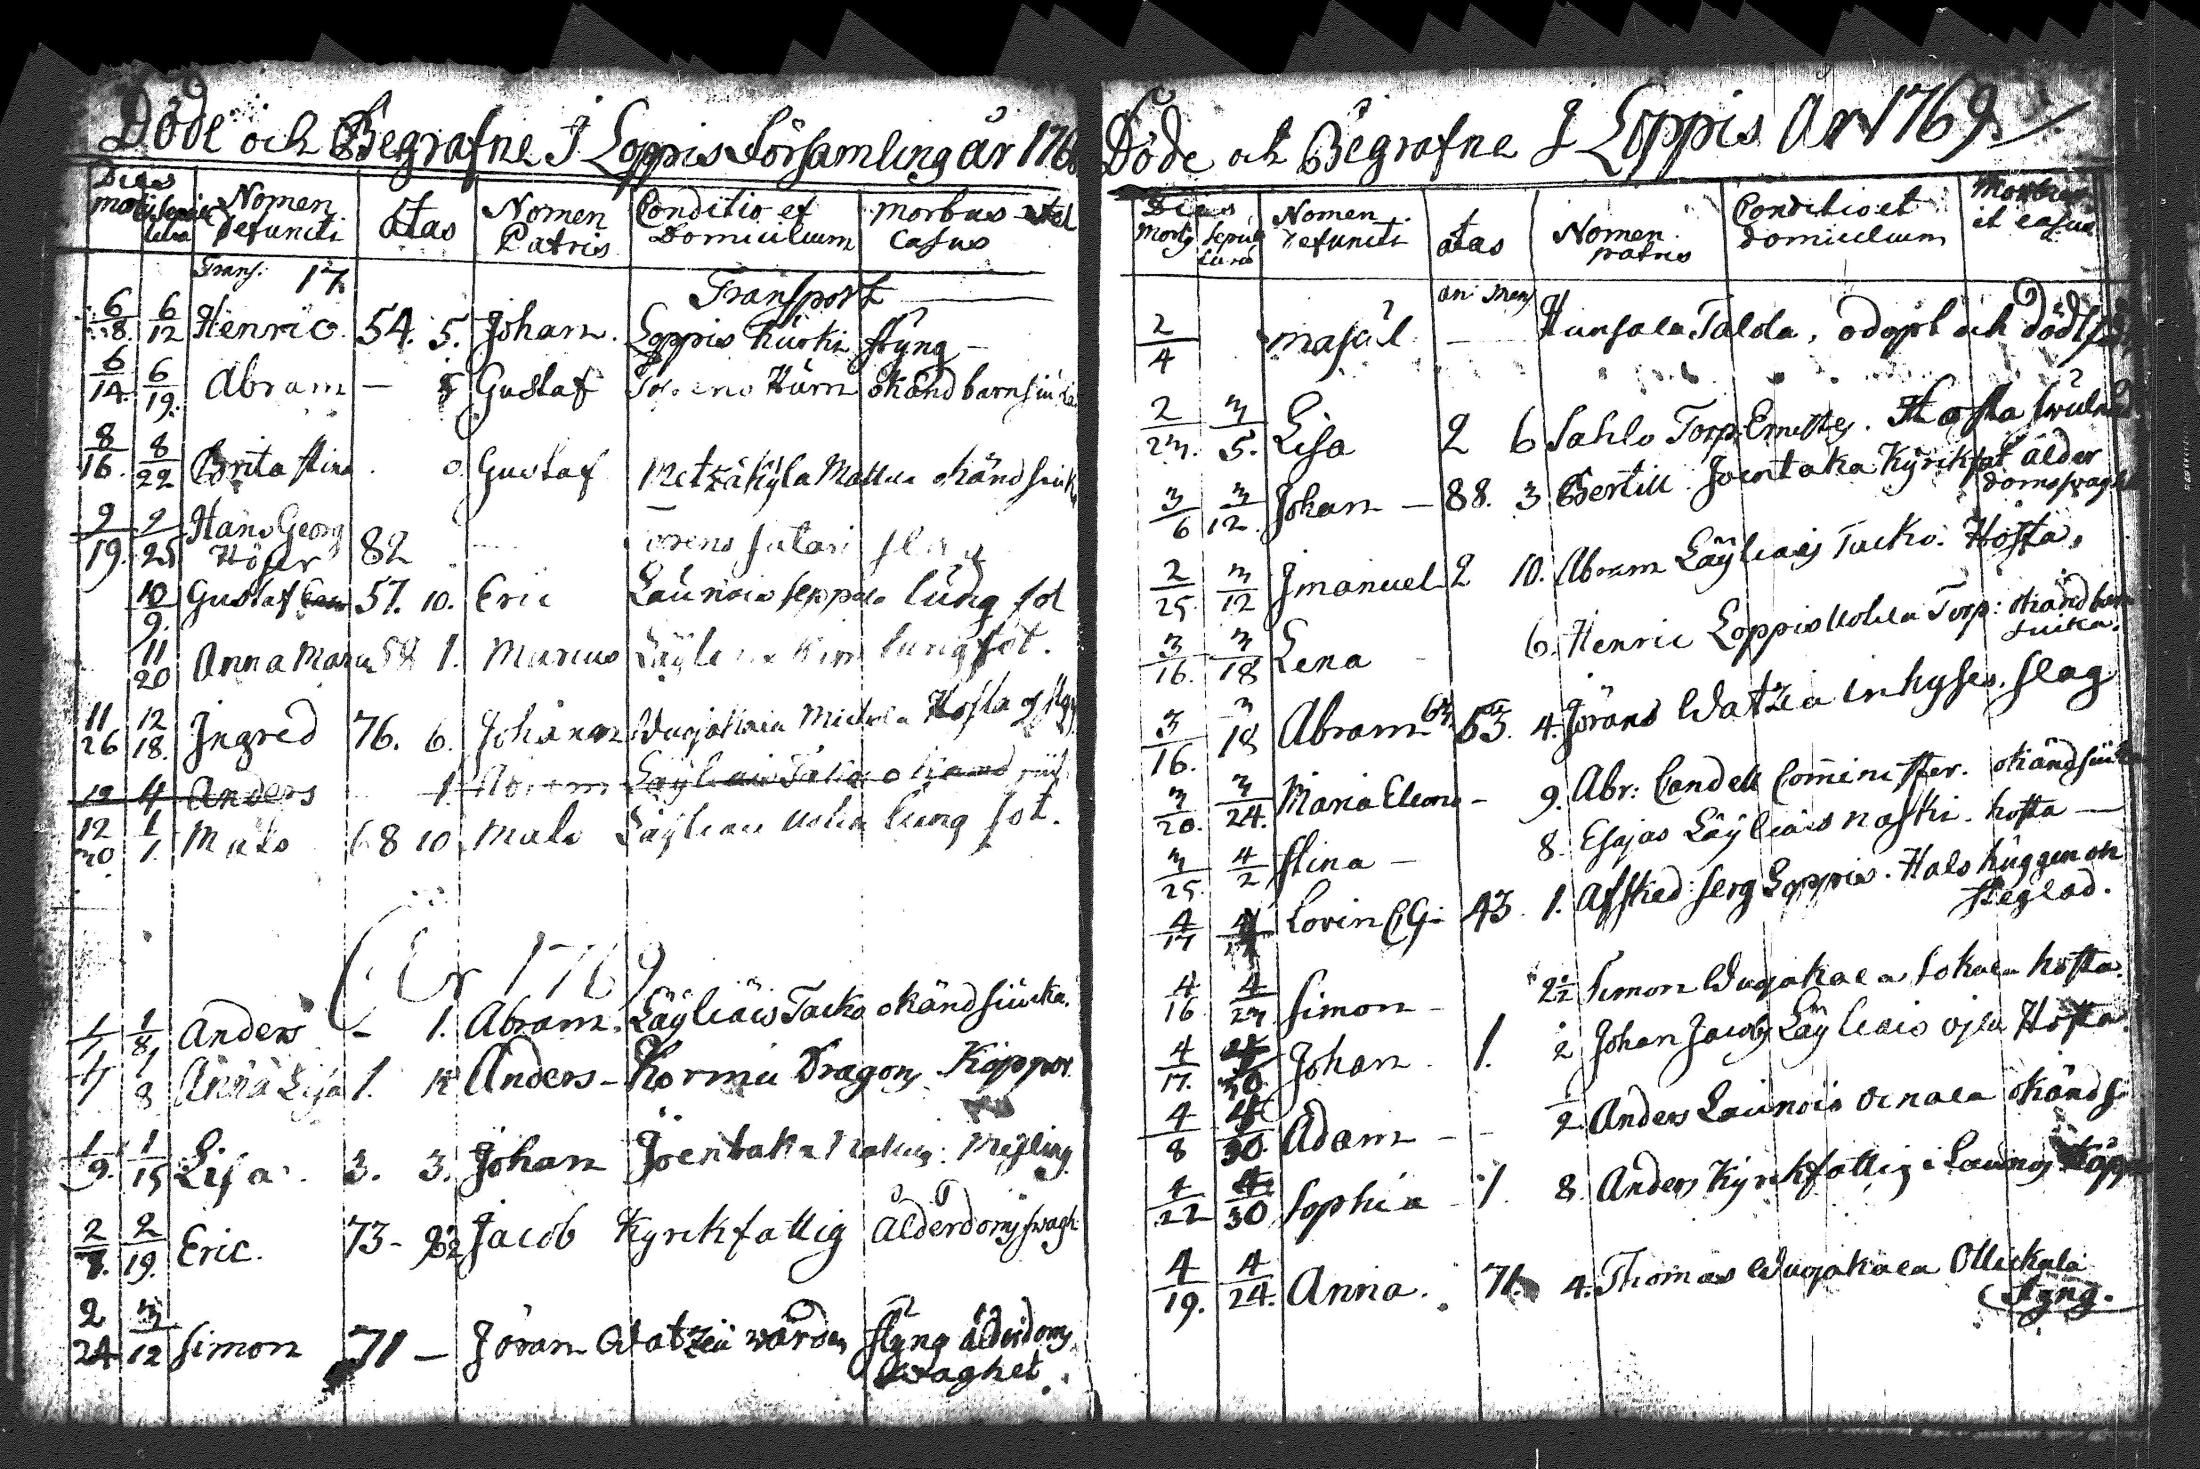 Döde och Begrafne I Loppis Församling år 176
Dies
mort sepul tura Nomen defuncti ætas Nomen Patris Conditio et Domicilium morbus vel Casus
Trans. 17. Transport
6/8. 6/12 Henric 54. 5. Johan. Loppis Kürki styng –
6/14. 6/19. Abram – 8 Gustaf Kärn okänd barnsiu
8/16. 8/22 Brita Stina . 0. Gustaf Metzäkÿla okänd siuk
9/19. 9/25 Hans Georg Höfer 82 – slag
10/9. Gustaf 57. 10. Eric Launois seppälä lung sot
11/20 Anna Maria 58 1. Marcus lungsot.
11/26 12/18. Ingred 76. 6. Johan Hosta
12 4 Anders – 1. Abram Läyliäis Tacko okänd
12/30 1/1. Mats 68 10 Mats Läyliäis lung sot.
År 1769
1/1 1/8 Anders – 1. Abram. Läyliäis Tacko okänd siucka.
1/1 1/8 Anna Lisa 1. Anders – Kormu Dragon Koppor
1/9. 1/15 Lisa . 3. 3. Johan Joentaka Mesling
2/8. 2/19. Eric. 73 – Jacob Kyrckfattig Ålderdoms swagh
2/24 3/12 Simon 71 – Jöran Watzia wården styng ålderdoms swaghet.
Döde och Begrafne I Loppis År 1769.
Dies
Mortis Sepul tura Nomen defuncti ætas Nomen patris Conditio et domicilium Morbus et casus
an: Men
2/4 mascul – Hunsala Talola, odöpt och dödf
2/23. 3/5. Lisa 2 6 Sahlo Torp: Hosta swulnad
3/6 3/12. Johan – 88. 3 Bertill Joentaka Kyrkfat ålder doms swagh
2/25. 3/12 Imanuel 2 10. Abram Läyliäis Tacko. Hosta.
3/16. 3/18 Lena – 6. Henric Loppis Uotila Torp: okänd barn siuka.
3/16. 3/18 Abram 63 53. 4. Jörans Watzia inhyses. slag
3/20. 3/24. Maria Eleon – 9. Abr: Candell Comminister. okänd siuk
3/25. 4/2 Stina – 8. Esajas Läyliäis naski. hosta –
4/17 4 Lorin CG: 43. 1. Afsked: Serg Loppis. Halshuggen och steglad.
4/16 4/23 Simon – 2½ Simon Wuojakala Sokala hosta.
4/17. 30. Johan. 1. 2 Johan Jacobs Läyliäis ojla Hosta
4/8 4/30. Adam – – ½ Anders Launois okänd s
4/22 4/30 Sophia – 1. 8. Anders Kyrckfattig i Launois Kopp
4/19. 4/24. Anna. 71. 4. Thomas Wuojakala Ollickala
styng.